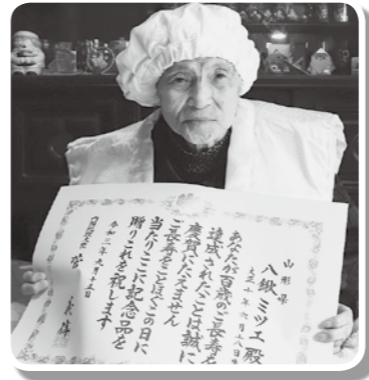 山形県
八鍬ミツエ殿
大正十年六月十八日生
あなたが百歳のご長寿を
達成されたことは誠に
慶賀にたえません
ご長寿をことほぐこの日に
当たりここに記念品を
贈りこれを祝します
令和三年九月十五日
内閣総理大臣 菅 義偉